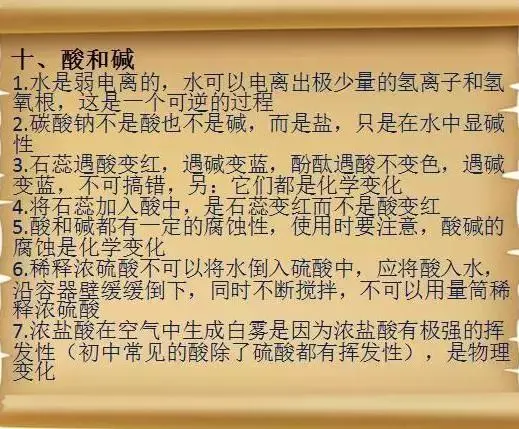 十、酸和碱
1.水是弱电离的，水可以电离出极少量的氢离子和氢
氧根，这是一个可逆的过程
2.碳酸钠不是酸也不是碱，而是盐，只是在水中显碱
性
3.石蕊遇酸变红，遇碱变蓝，酚酞遇酸不变色，遇碱
变蓝，不可搞错，另：它们都是化学变化
4.将石蕊加入酸中，是石蕊变红而不是酸变红
5.酸和碱都有一定的腐蚀性，使用时要注意，酸碱的
腐蚀是化学变化
6.稀释浓硫酸不可以将水倒入硫酸中，应将酸入水，
沿容器壁缓缓倒下，同时不断搅拌，不可以用量筒稀
释浓硫酸
7.浓盐酸在空气中生成白雾是因为浓盐酸有极强的挥
发性（初中常见的酸除了硫酸都有挥发性），是物理
变化